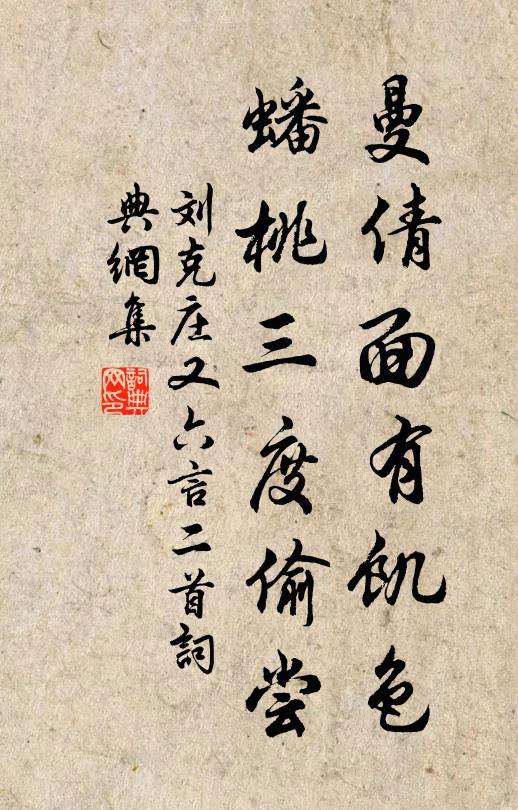 曼倩面有飢色
蟠桃三度偷尝
刘克庄又六言二首詞
典網集
詞典网印